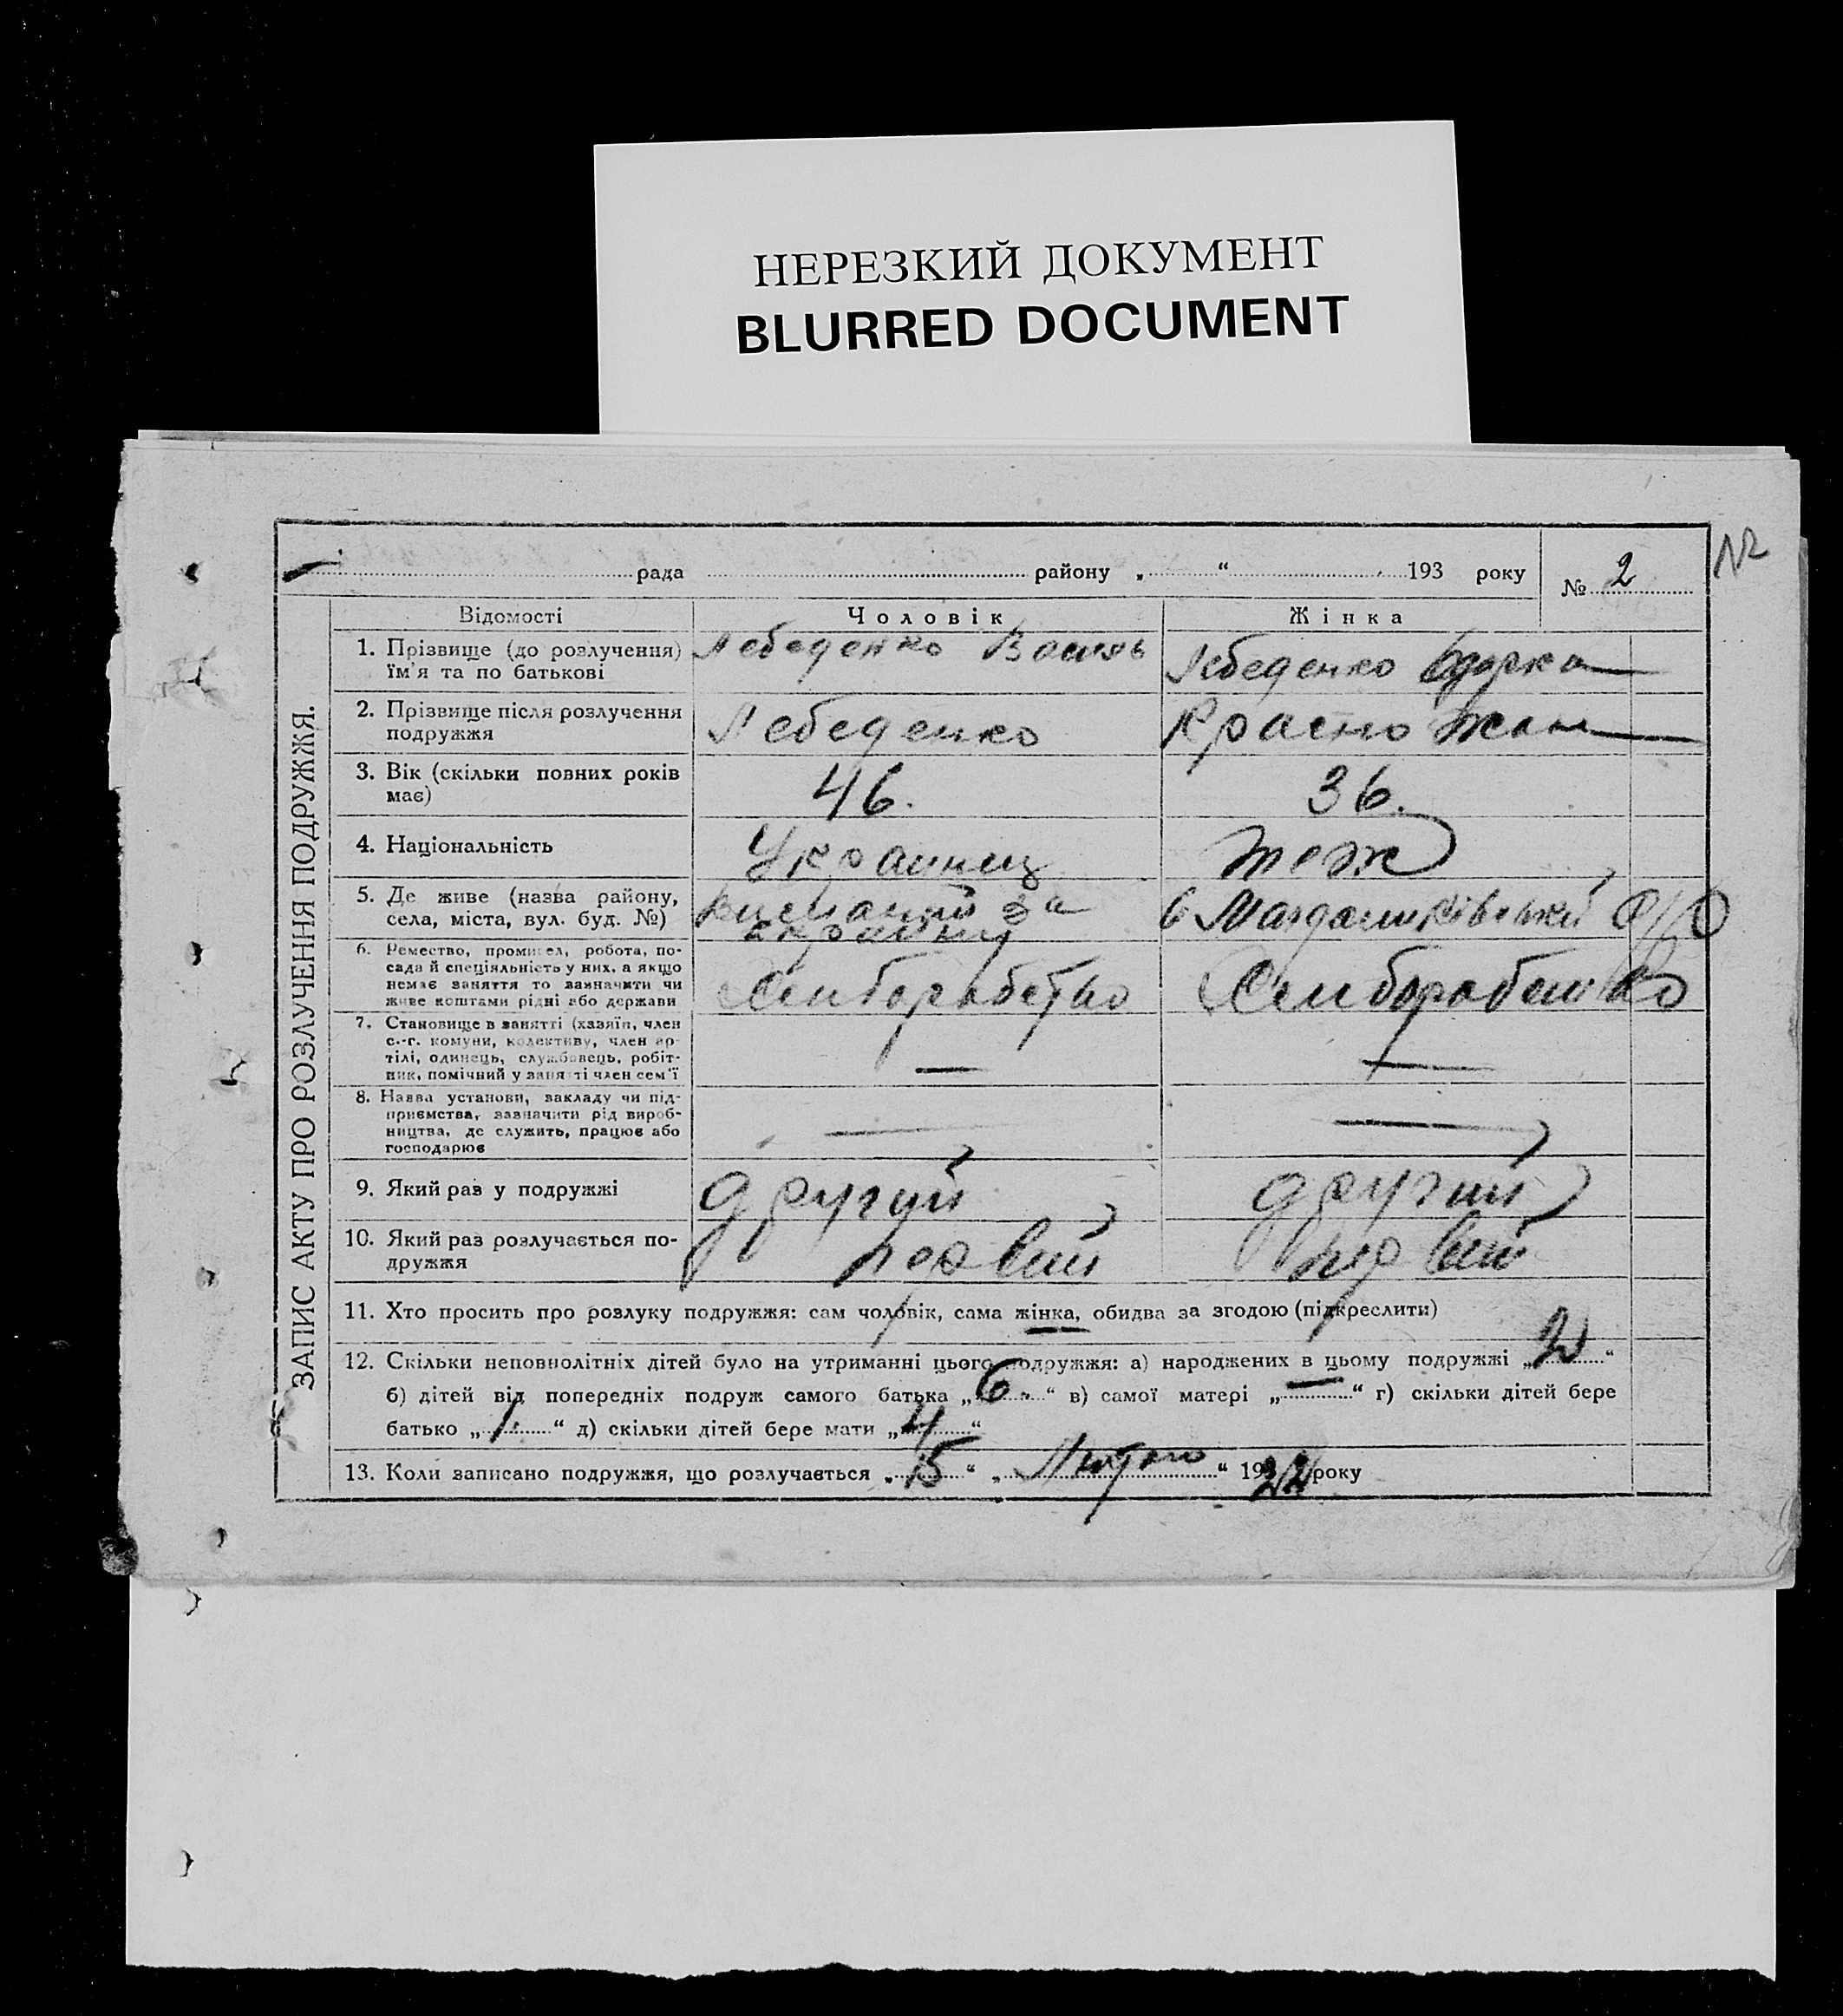 НЕРЕЗКИЙ ДОКУМЕНТ
BLURRED DOCUMENT
рада району „ “ 193 року № 2
ЗАПИС АКТУ ПРО РОЗЛУЧЕННЯ ПОДРУЖЖЯ.
Відомості Чоловік Жінка
1. Прізвище (до розлучення) Лебеденко Лебеденко
їм'я та по батькові
2. Прізвище після розлучення Лебеденко
подружжя
3. Вік (скільки повних років 46. 36.
має)
4. Національність Українец теж
5. Де живе (назва району,
села, міста, вул. буд. №)
6. Ремество, промисел, робота, по-
сада й спеціяльність у них, а якщо
немає заняття то зазначити чи
живе коштами рідні або держави
7. Становище в занятті (хазяїн, член
с.-г. комуни, колективу, член ар-
тілі, одинець, службовець, робіт- — —
ник, помічний у занятті член сем'ї
8. Назва установи, закладу чи під-
приємства, зазначити рід вироб-
ництва, де служить, працює або — —
господарює
9. Який раз у подружжі другий другий
10. Який раз розлучається по- первий первий
дружжя
11. Хто просить про розлуку подружжя: сам чоловік, сама жінка, обидва за згодою (підкреслити)
12. Скільки неповнолітніх дітей було на утриманні цього подружжя: а) народжених в цьому подружжі „ “
б) дітей від попередніх подруж самого батька „6.“ в) самої матері „—“ г) скільки дітей бере
батько „1.“ д) скільки дітей бере мати „4“
13. Коли записано подружжя, що розлучається „15“ „Лютого“ 19 року